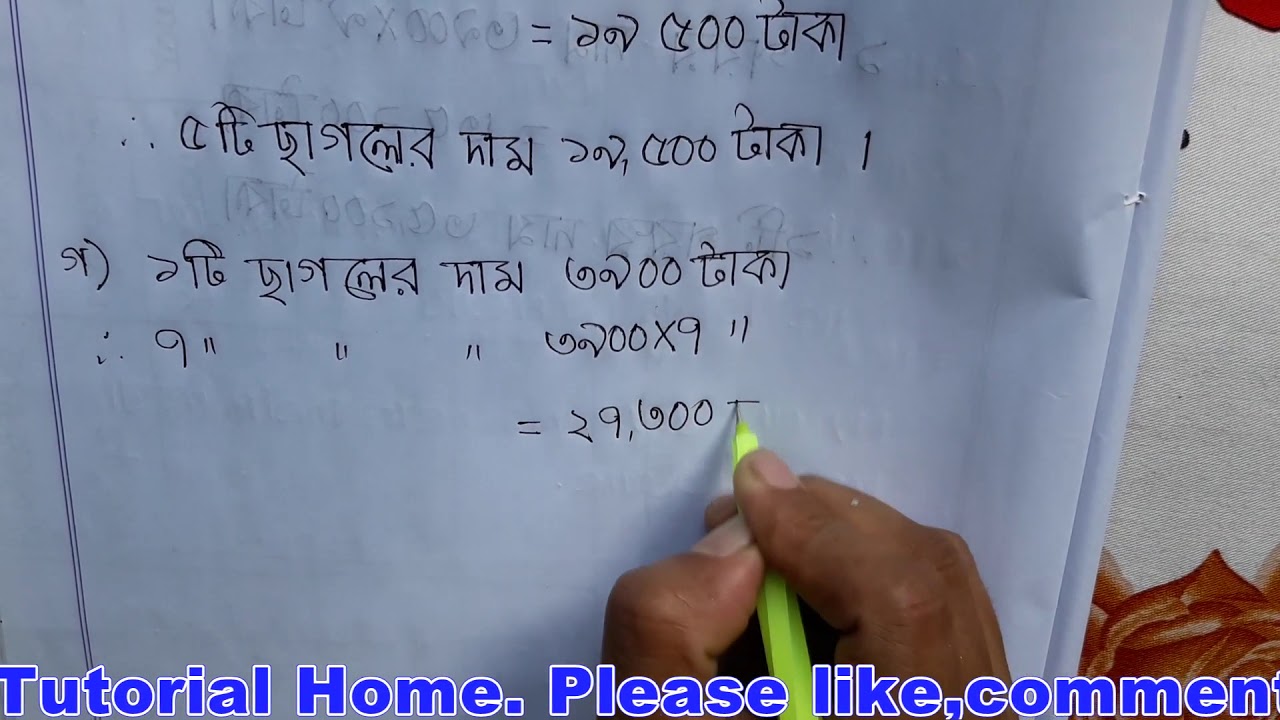 = ১৯ ৫০০ টাকা
∴ ৫টি ছাগলের দাম ১৯,৫০০ টাকা ।
গ) ১টি ছাগলের দাম ৩৯০০ টাকা
∴ ৭ " " " ৩৯০০×৭ "
= ২৭,৩০০ ট
Tutorial Home. Please like,comment